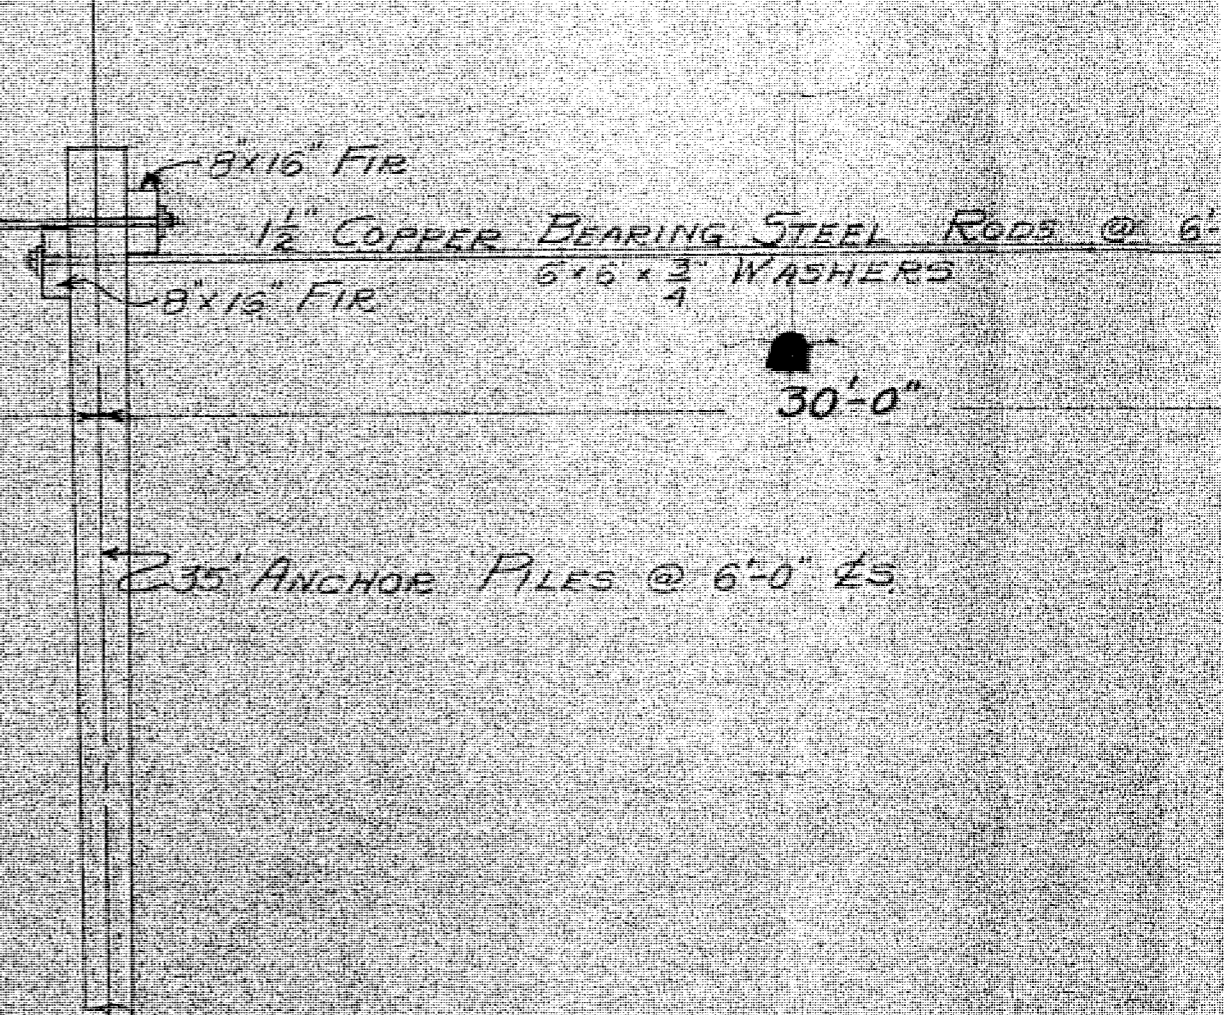 8"x16" FIR
1½" COPPER BEARING STEEL RODS @ 6'-
6 x 6 x ¾" WASHERS
8"x16" FIR
30'-0"
35' ANCHOR PILES @ 6'-0" ℄s.